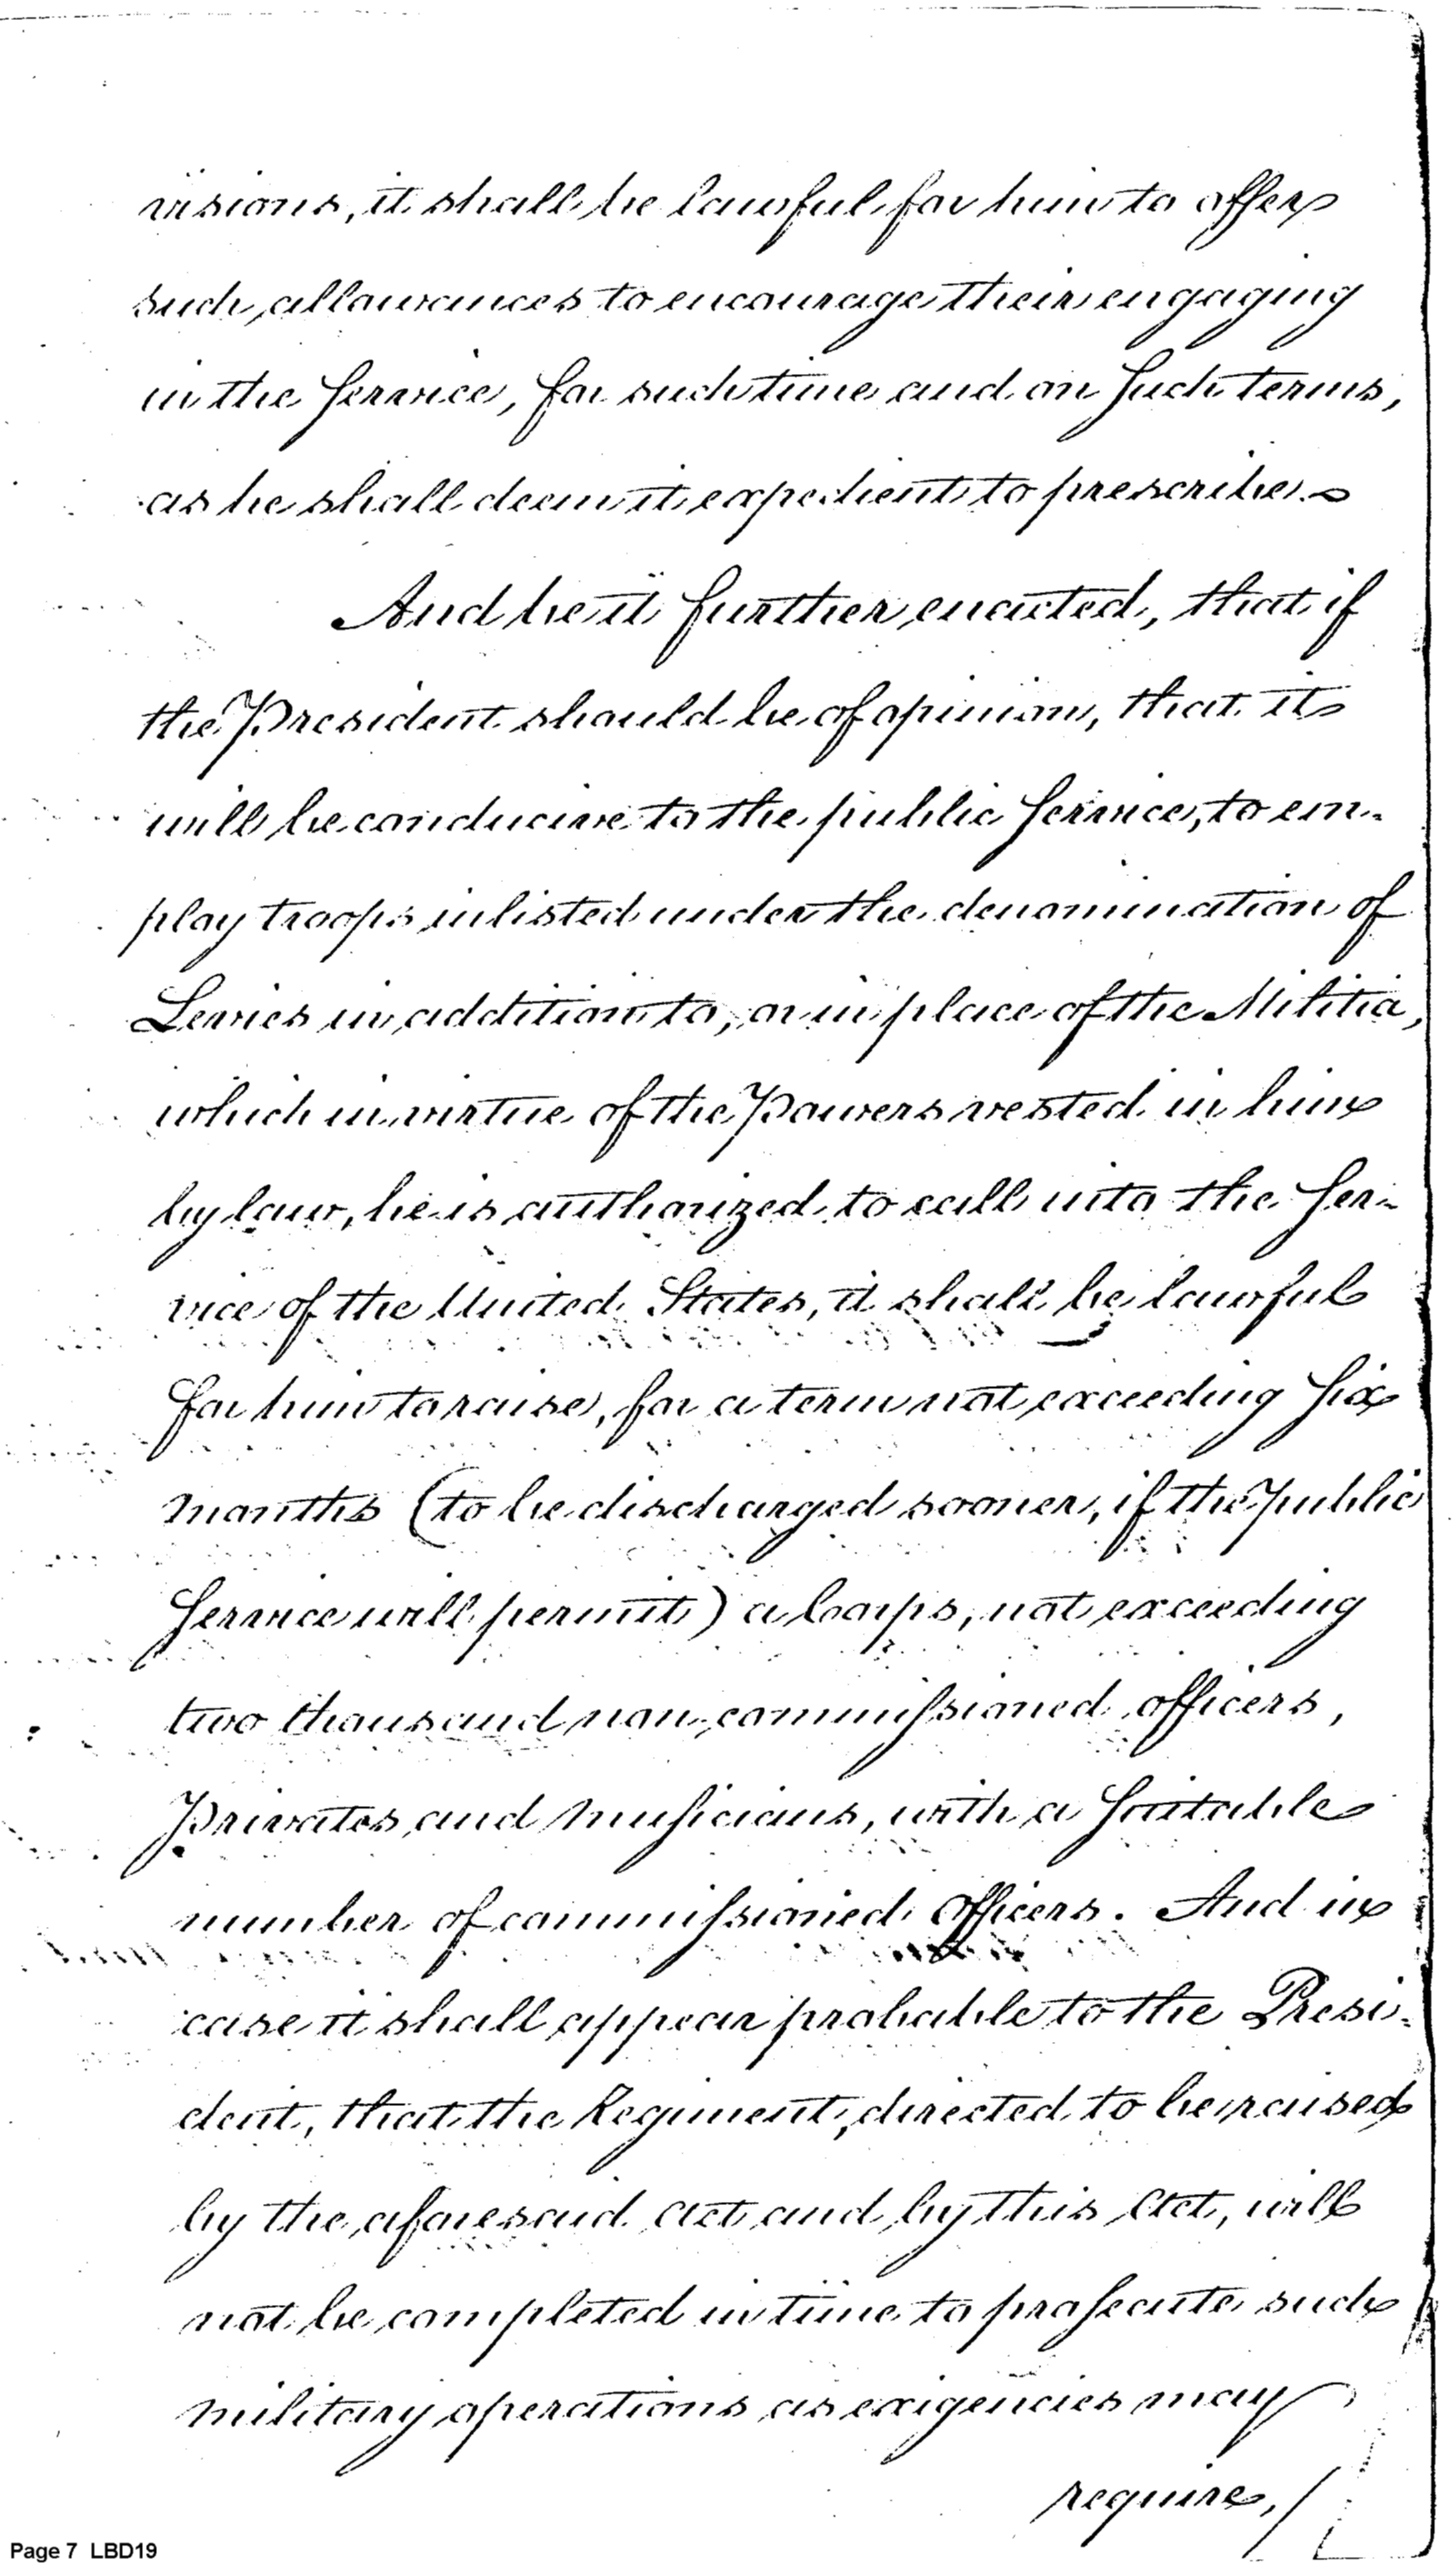 visions, it shall be lawful for him to offer
such allowances to encourage their engaging
in the Service, for such time and on Such terms,
as he shall deem it expedient to prescribe.
And be it further enacted, that if
the President should be of opinion, that it
will be conducive to the public Service, to em-
ploy troops inlisted under the denomination of
Levies in addition to, or in place of the Militia,
which in virtue of the Powers vested in him
by law, he is authorized to call into the Ser-
vice of the United States, it shall be lawful
for him to raise, for a term not exceeding Six
months (to be discharged sooner, if the public
Service will permit) a Corps, not exceeding
two thousand non-commissioned officers,
Privates and Musicians, with a Suitable
number of commissioned Officers. And in
case it shall appear probable to the Presi-
dent, that the Regiment, directed to be raised
by the aforesaid act and by this Act, will
not be completed in time to prosecute such
military operations as exigencies may
require,
Page 7 LBD19